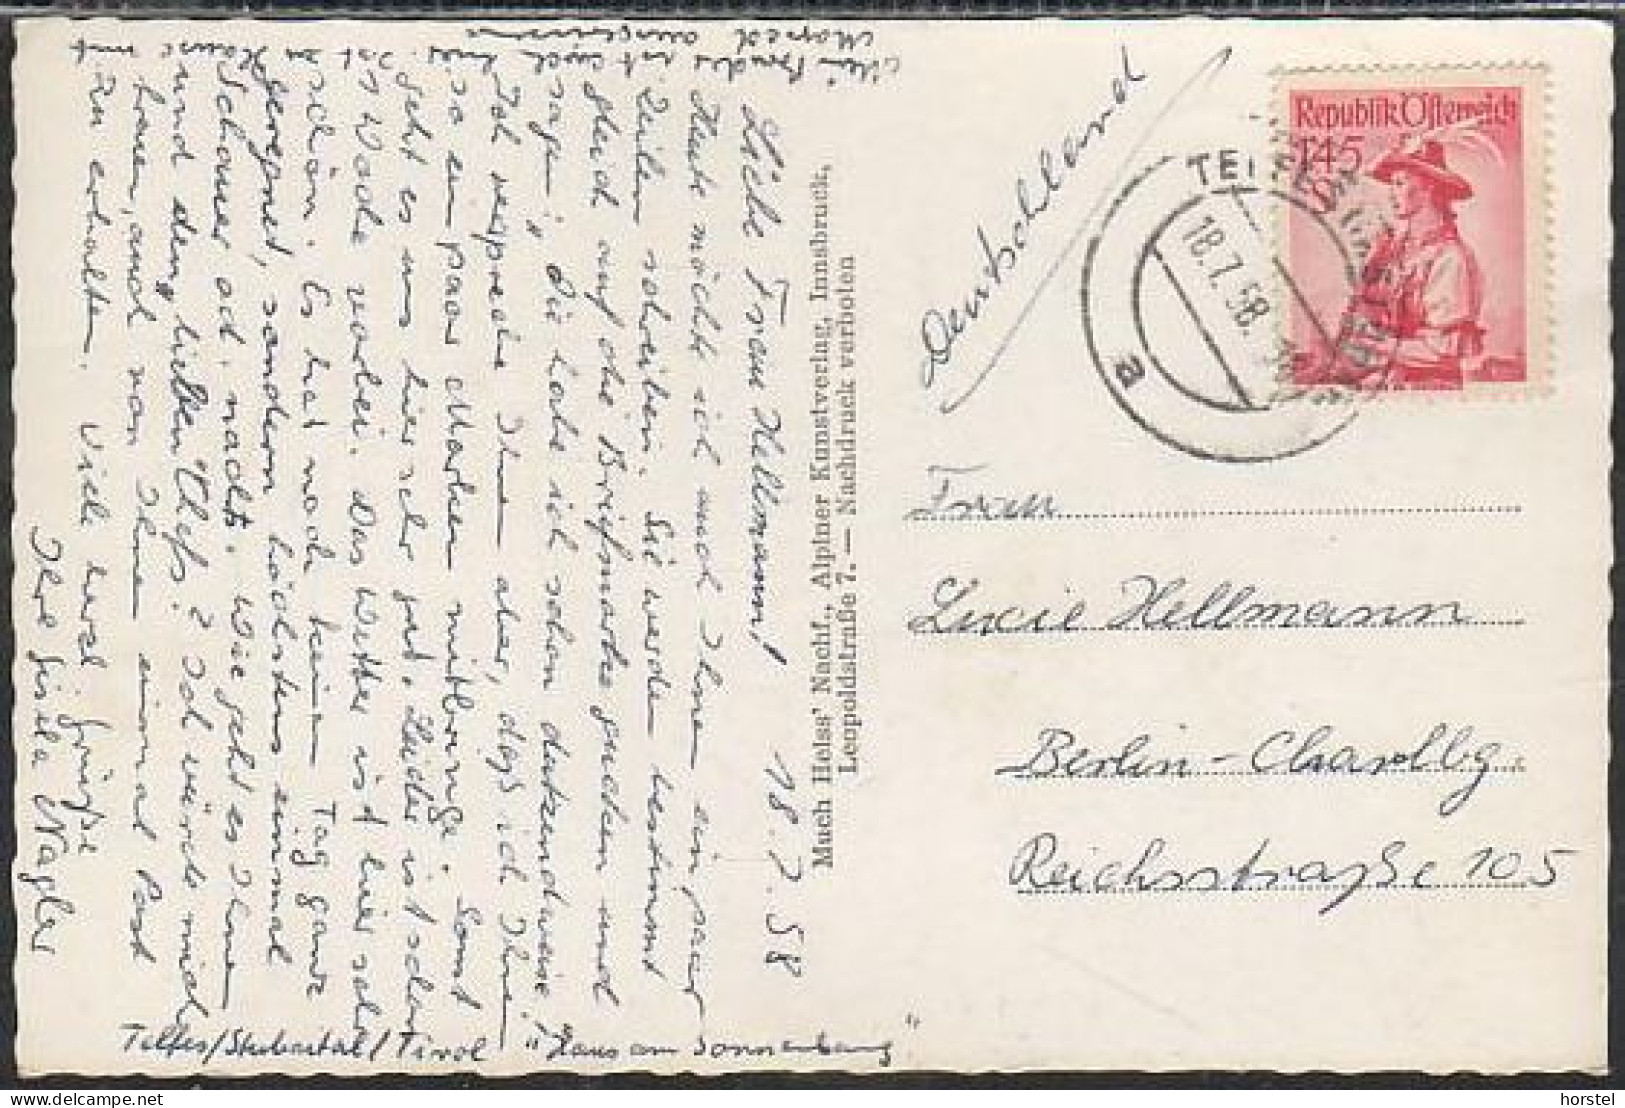 Liebe Frau Hellmann! 18.7.58
Heute möchte ich auch Ihnen ein paar
Zeilen schreiben. Sie werden bestimmt
gleich auf die Briefmarke gucken und
sagen „Die habe ich schon dutzendweise!"
Ich verspreche Ihnen aber, daß ich Ihnen
so ein paar Marken mitbringe. Sonst
geht es uns hier sehr gut. Leider ist schon
1 Woche vorbei. Das Wetter ist hier sehr
schön. Es hat noch keinen Tag ganz
geregnet, sondern höchstens einmal
Schauer od. nachts. Wie geht es Ihnen
und dem „lieben Chef"? Ich würde mich
freuen, auch von Ihnen einmal Post
zu erhalten. Viele herzl. Grüße
Ihre Gisela Nagler
Mein Bruder ist auch hier. Ist zu Hause mit
Moped
Telfes/Stubaital/Tirol "Haus am Sonnenhang"
Much Heiss' Nachf., Alpiner Kunstverlag, Innsbruck,
Leopoldstraße 7. — Nachdruck verboten
Deutschland
Republik Österreich
1.45
TELFES
18.7.58
a
Frau
Lucie Hellmann
Berlin-Charlbg.
Reichsstraße 105
delcampe.net
horstel